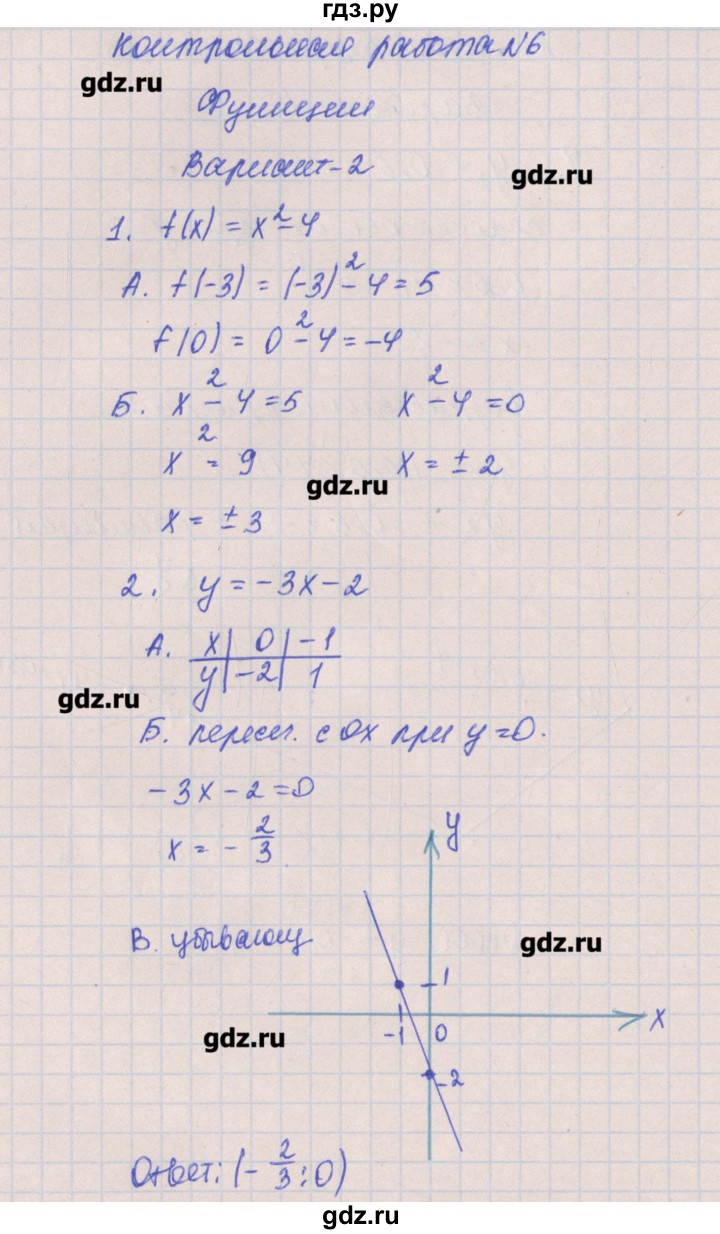 гдз.ру
Контрольная работа №6
gdz.ru
Функции
Вариант-2
gdz.ru
1. f(x) = x² - 4
А. f(-3) = (-3)² - 4 = 5
f(0) = 0² - 4 = -4
Б. x² - 4 = 5 x² - 4 = 0
x² = 9 x = ± 2
gdz.ru
x = ± 3
2. y = -3x - 2
А. x | 0 | -1
y | -2 | 1
gdz.ru
Б. пересеч. с ox при y=0.
-3x - 2 = 0
x = - 2/3
y
В. убывающ
gdz.ru
1
x
-1 0
gdz.ru
-2
Ответ: (- 2/3; 0)
gdz.ru